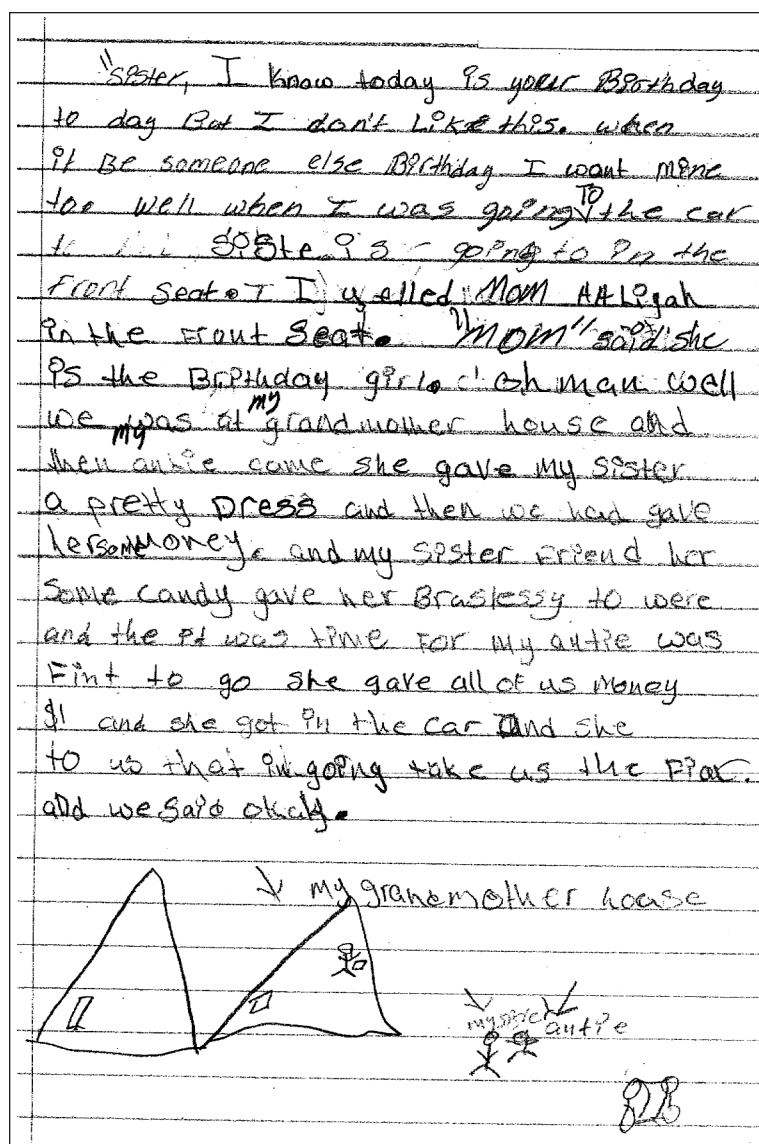 "Sister, I know today is your Birthday
to day But I don't Like this. when
it Be someone else Birthday I want mine
too well when I was going TO the car
siste is going to in the
Front seat. I I yelled Mom AALiyah
in the Front Seat. "Mom" said she
is the Brithday girl. oh man well
we was at my grandmother house and
then my antie came she gave My sister
a pretty Dress and then we had gave
her some Money. and my sister Friend her
some candy gave her Braslessy to were
and the it was time For my autie was
Fint to go she gave all of us Money
$1 and she got in the car and she
to us that im going take us the Fiar.
and we said okay.
my grandmother house
my sister autie